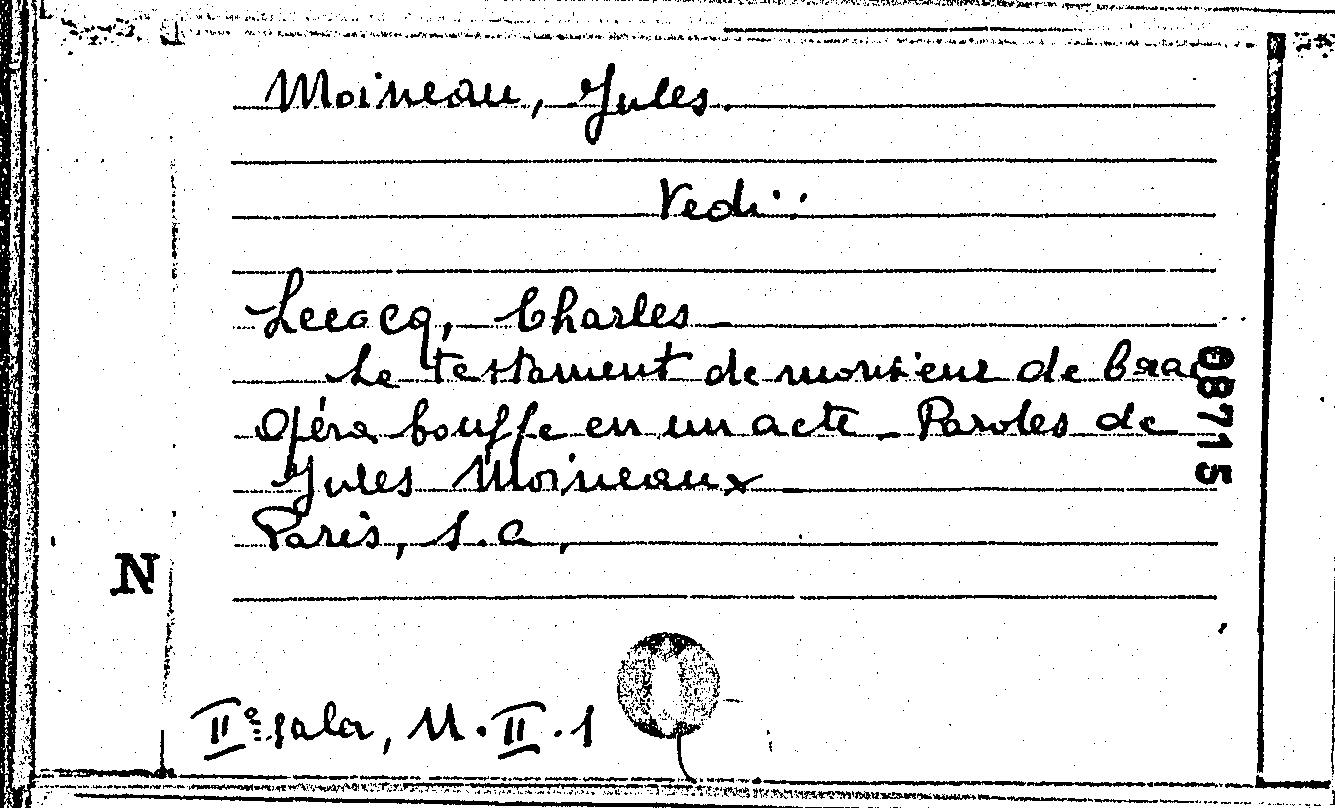 Moineau, Jules.
Vedi:
Lecocq, Charles
Le testament de monsieur de Crac
Opéra bouffe en un acte - Paroles de
Jules Moineaux
Paris, s.a.
08715
N
IIª sala, M.II.1